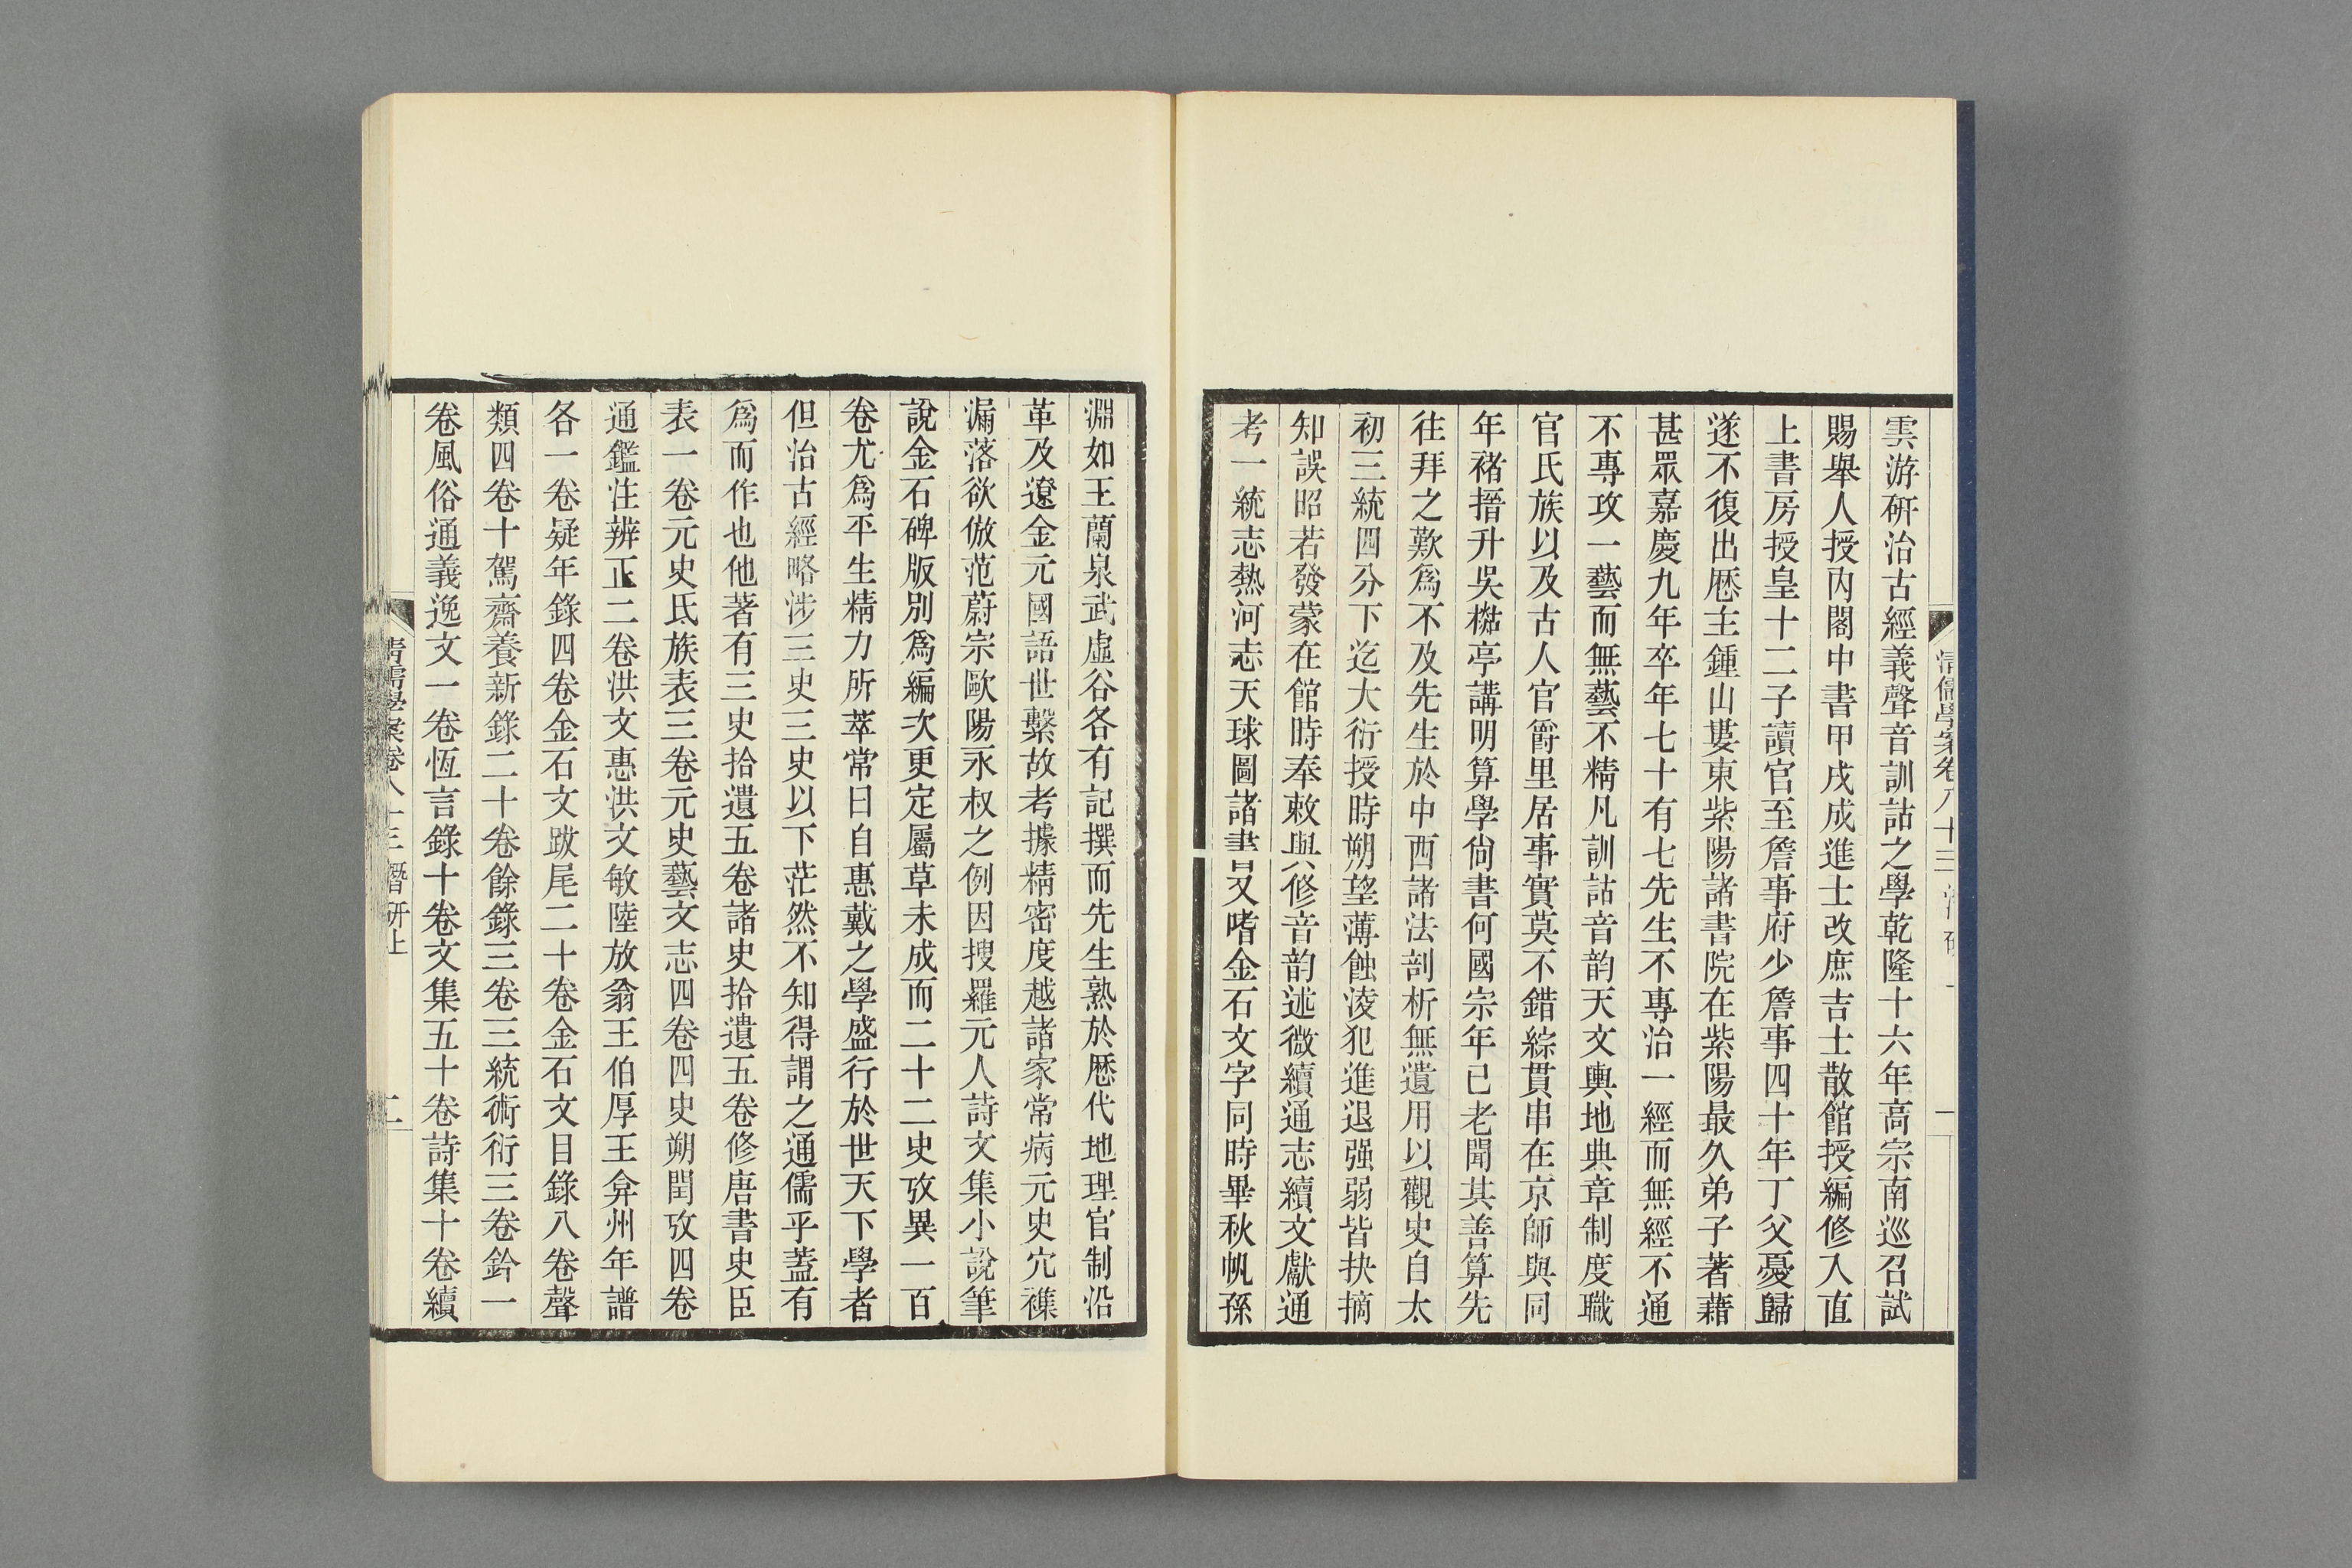 雲游硏治古經義聲音訓詁之學乾隆十六年高宗南巡召試
賜舉人授內閣中書甲戌成進士改庶吉士散館授編修入直
上書房授皇十二子讀官至詹事府少詹事四十年丁父憂歸
遂不復出厯主鍾山婁東紫陽諸書院在紫陽最久弟子著藉
甚眾嘉慶九年卒年七十有七先生不專治一經而無經不通
不專攻一藝而無藝不精凡訓詁音韵天文輿地典章制度職
官氏族以及古人官爵里居事實莫不錯綜貫串在京師與同
年褚搢升吳檆亭講明算學尙書何國宗年已老聞其善算先
往拜之歎爲不及先生於中西諸法剖析無遺用以觀史自太
初三統四分下迄大衍授時朔望薄蝕淩犯進退强弱皆抉摘
知誤昭若發蒙在館時奉敕與修音韵述微續通志續文獻通
考一統志熱河志天球圖諸書又嗜金石文字同時畢秋帆孫
淵如王蘭泉武虛谷各有記撰而先生熟於厯代地理官制沿
革及遼金元國語世繫故考據精密度越諸家常病元史冗襍
漏落欲倣范蔚宗歐陽永叔之例因搜羅元人詩文集小說筆
說金石碑版別爲編次更定屬草未成而二十二史攷異一百
卷尤爲平生精力所萃常曰自惠戴之學盛行於世天下學者
但治古經略涉三史三史以下茫然不知得謂之通儒乎蓋有
爲而作也他著有三史拾遺五卷諸史拾遺五卷修唐書史臣
表一卷元史氏族表三卷元史藝文志四卷四史朔閏攷四卷
通鑑注辨正二卷洪文惠洪文敏陸放翁王伯厚王弇州年譜
各一卷疑年錄四卷金石文跋尾二十卷金石文目錄八卷聲
類四卷十駕齋養新錄二十卷餘錄三卷三統術衍三卷鈐一
卷風俗通義逸文一卷恆言錄十卷文集五十卷詩集十卷續
清儒學案卷八十三 潛研上
二